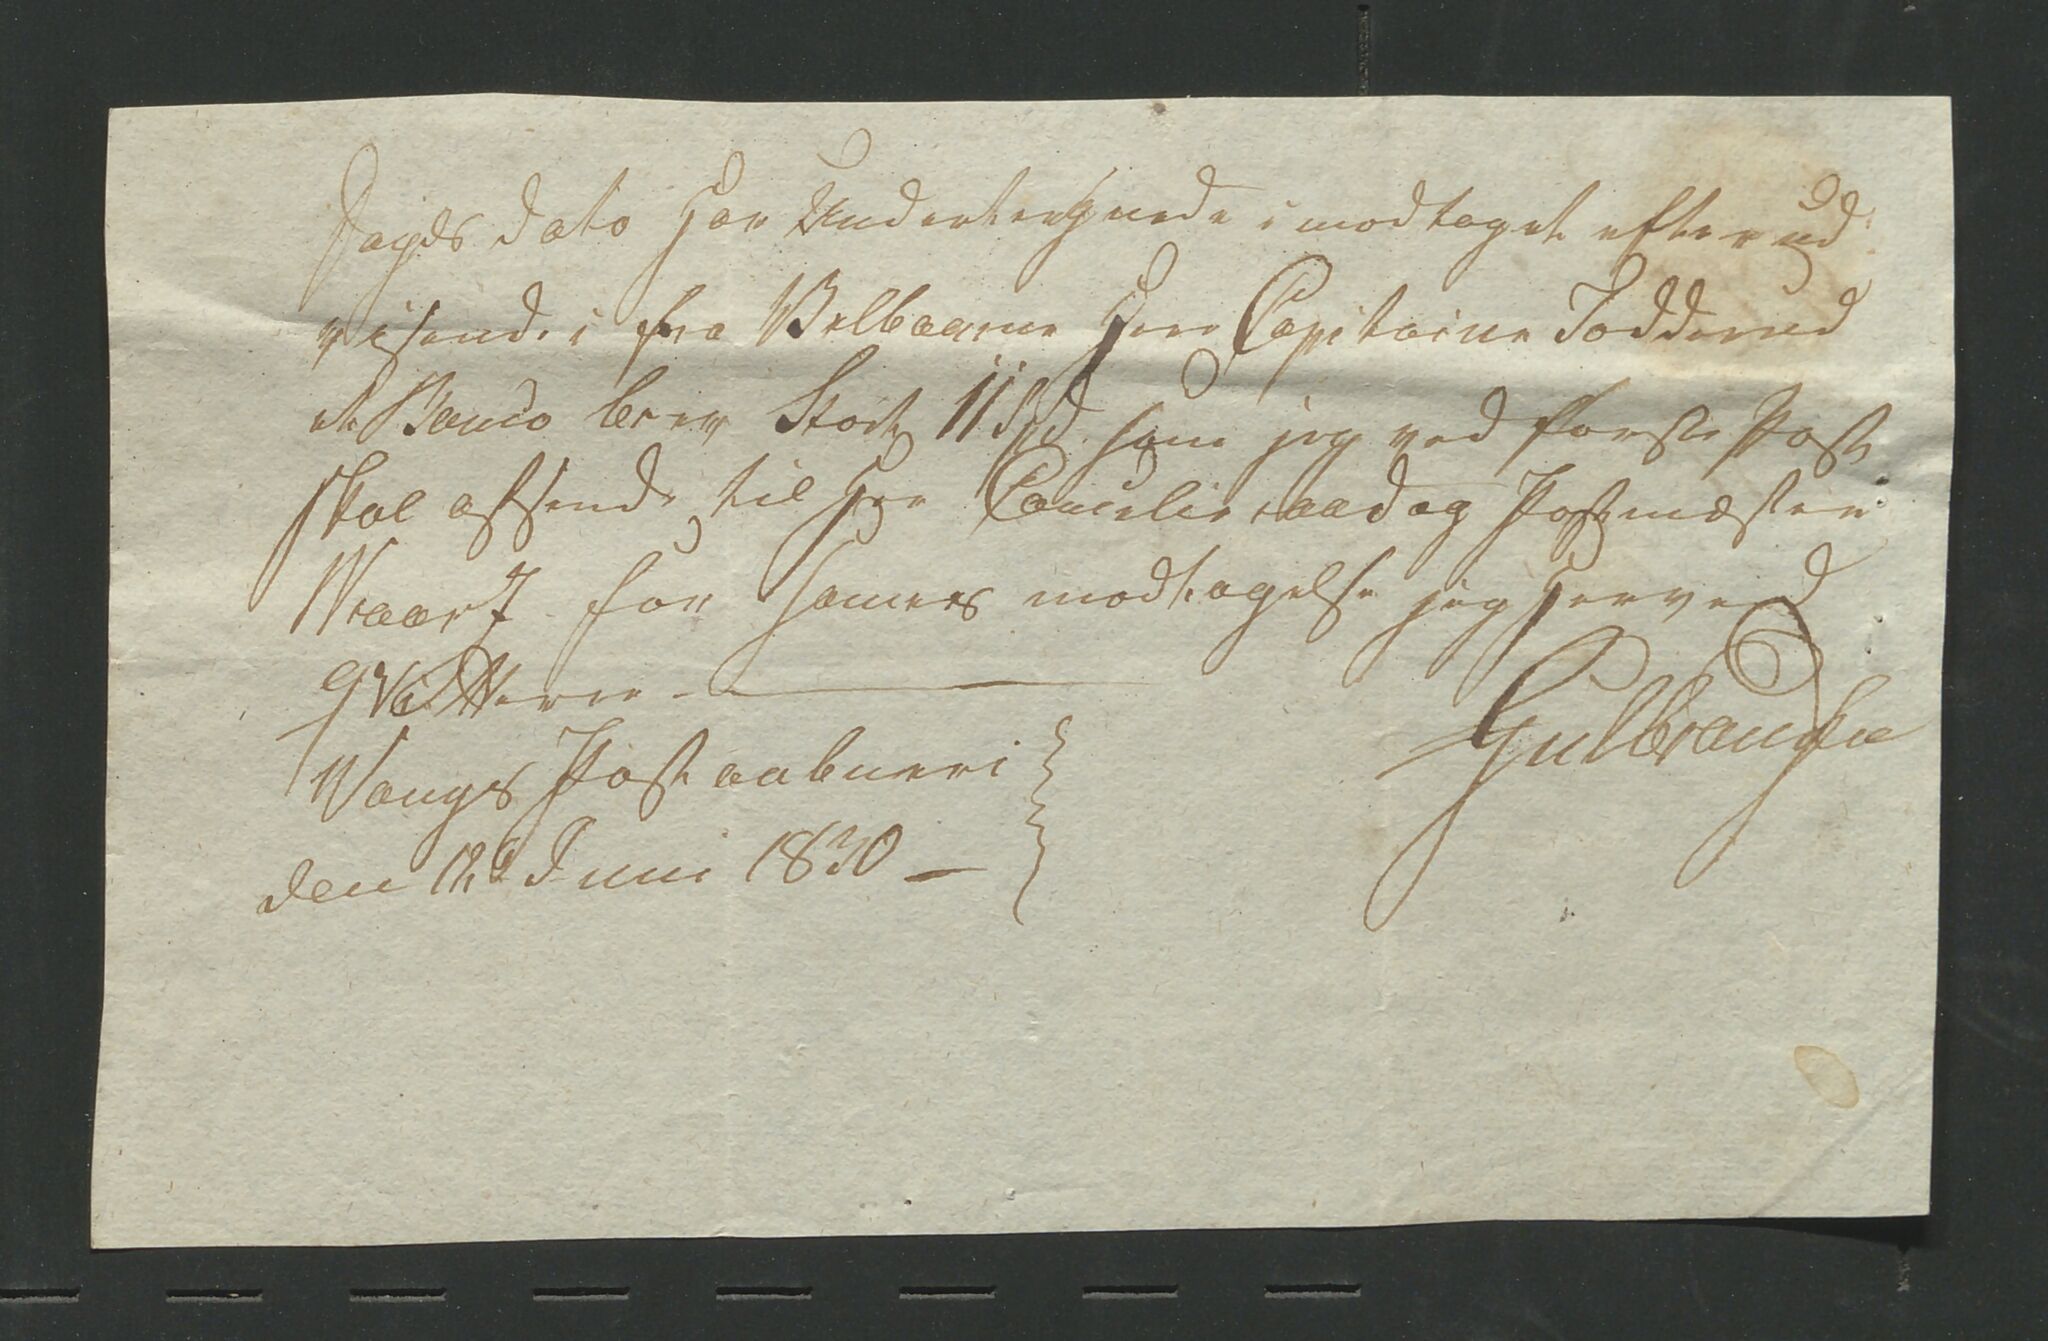 Dagds Dato har Undertegnede imodtaget efter ud
visende i fra Velbaarne Herr Capitaine Todderud
et Banco brev Stort 11 Spd. som jeg ved første Post
skal afsende til Her Cancelieraad og Postmæster
for sammes modtagelse jeg herved
qvitterer -
Vangs Postaabneri
den 12t Juni 1830 -
Gulbrandsen